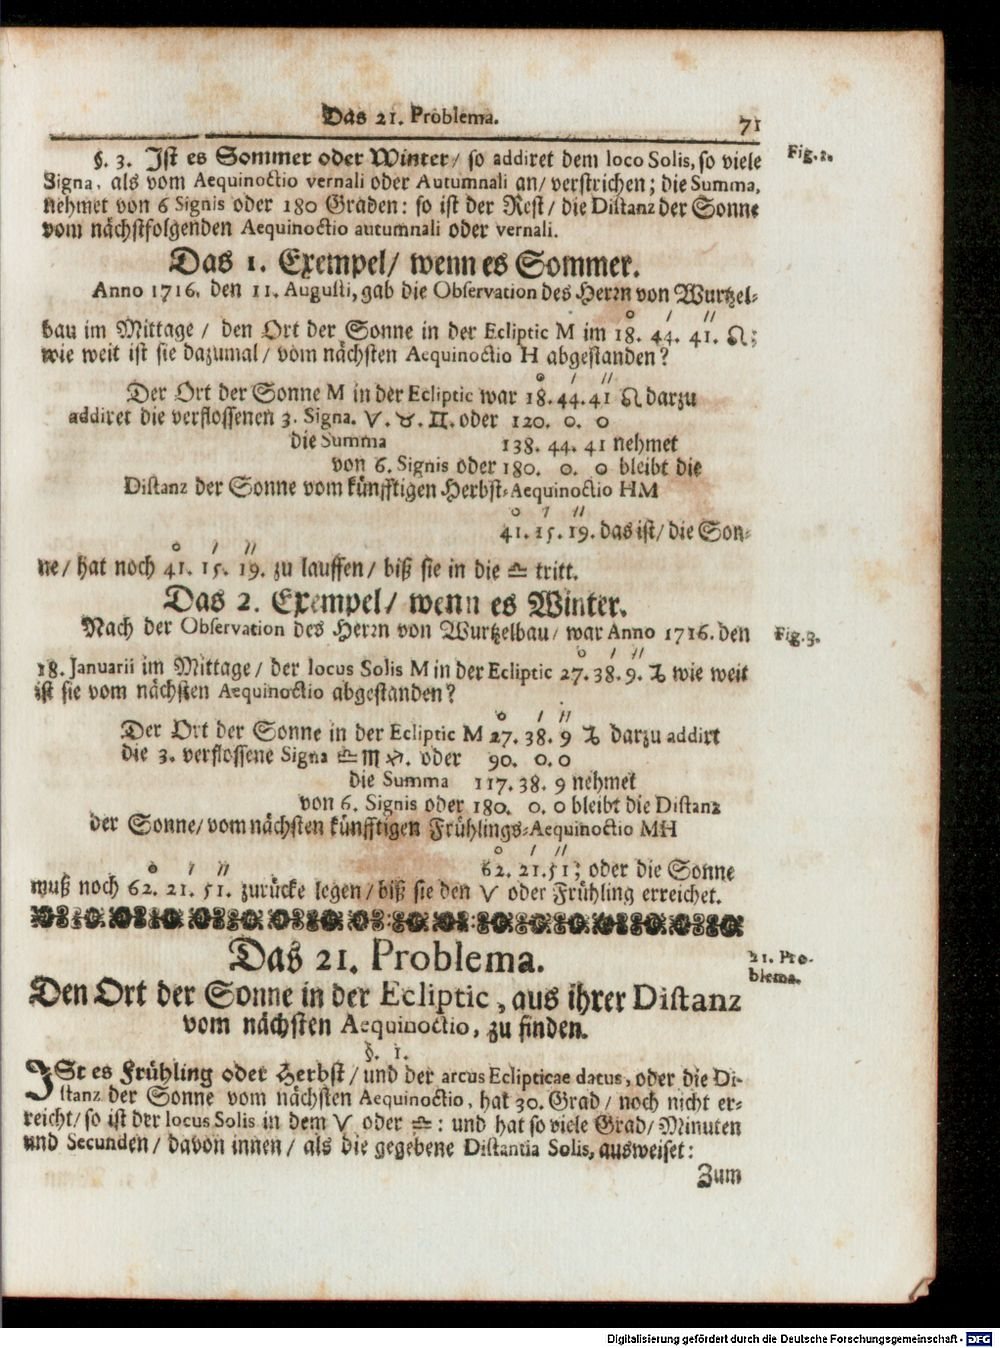 Das 21. Problema.
71
§. 3. Ist es Sommer oder Winter/ so addiret dem loco Solis, so viele
Fig. 2.
Signa, als vom Aequinoctio vernali oder Autumnali an/ verstrichen; die Summa,
nehmet von 6 Signis oder 180 Graden: so ist der Rest/ die Distanz der Sonne
vom nächstfolgenden Aequinoctio autumnali oder vernali.
Das 1. Exempel/ wenn es Sommer.
Anno 1716. den 11. Augusti, gab die Observation des Herrn von Wurtzel-
o / //
bau im Mittage / den Ort der Sonne in der Ecliptic M im 18. 44. 41. ♌;
wie weit ist sie dazumal/ vom nächsten Aequinoctio H abgestanden?
o / //
Der Ort der Sonne M in der Ecliptic war 18. 44. 41 ♌ darzu
addiret die verflossenen 3. Signa. ♈. ♉. ♊. oder 120. 0. 0
die Summa 138. 44. 41 nehmet
von 6. Signis oder 180. 0. 0 bleibt die
Distanz der Sonne vom künfftigen Herbst-Aequinoctio HM
o / //
41. 15. 19. das ist/ die Son-
o / //
ne/ hat noch 41. 15. 19. zu lauffen/ biß sie in die ♎ tritt.
Das 2. Exempel/ wenn es Winter.
Nach der Observation des Herrn von Wurtzelbau/ war Anno 1716. den
Fig. 3.
o / //
18. Januarii im Mittage/ der locus Solis M in der Ecliptic 27. 38. 9. ♑ wie weit
ist sie vom nächsten Aequinoctio abgestanden?
o / //
Der Ort der Sonne in der Ecliptic M 27. 38. 9 ♑ darzu addirt
die 3. verflossene Signa ♎ ♏ ♐. oder 90. 0. 0
die Summa 117. 38. 9 nehmet
von 6. Signis oder 180. 0. 0 bleibt die Distanz
der Sonne/ vom nächsten künfftigen Frühlings-Aequinoctio MH
o / //
62. 21. 51; oder die Sonne
o / //
muß noch 62. 21. 51. zurücke legen/ biß sie den ♈ oder Frühling erreichet.
Das 21. Problema.
21. Pro-
blema.
Den Ort der Sonne in der Ecliptic, aus ihrer Distanz
vom nächsten Aequinoctio, zu finden.
§. 1.
ISt es Frühling oder Herbst/ und der arcus Eclipticae datus, oder die Di-
stanz der Sonne vom nächsten Aequinoctio, hat 30. Grad/ noch nicht er-
reicht/ so ist der locus Solis in dem ♈ oder ♎: und hat so viele Grad/ Minuten
und Secunden/ davon innen/ als die gegebene Distantia Solis, ausweiset:
Zum
Digitalisierung gefördert durch die Deutsche Forschungsgemeinschaft - DFG